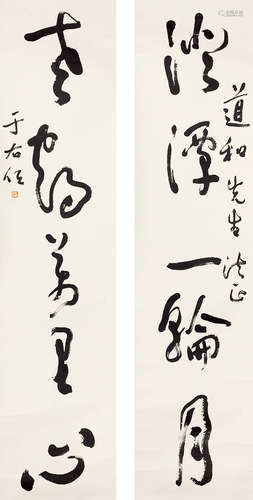 澄潭一輪月
道和先生法正
老鶴萬里心
于右任